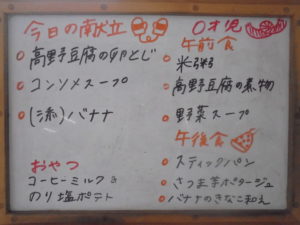 今日の献立
○高野豆腐の卵とじ
○コンソメスープ
○(添)バナナ
おやつ
コーヒーミルク&
のり塩ポテト
0才児
午前食
○米粥
○高野豆腐の煮物
○野菜スープ
午後食
○スティックパン
○さつま芋ポタージュ
○バナナのきなこ和え